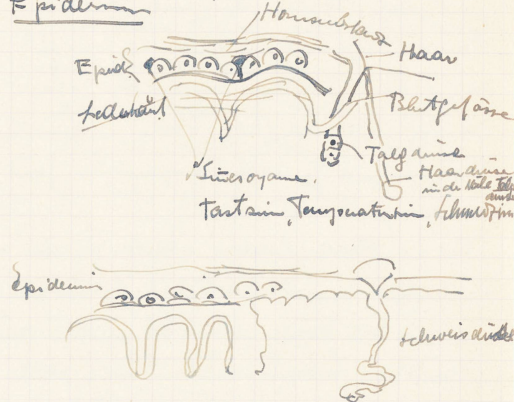 Epidermis
Hornsubstanz
Haar
Epid
Lederhaut
Blutgefässe
Talgdrüse
Haardrüse
in der Nähe
Sinnesorgane.
Tastsinn, Temperatursinn, Schmerzsinn
Epidermis
Schweisdrüse